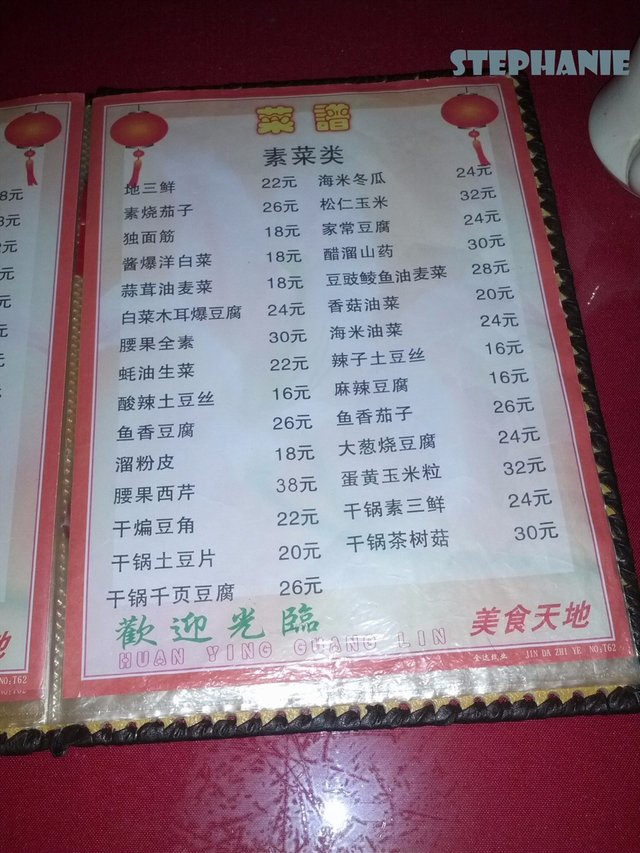 STEPHANIE
菜譜
素菜类
地三鲜 22元 海米冬瓜 24元
素烧茄子 26元 松仁玉米 32元
独面筋 18元 家常豆腐 24元
酱爆洋白菜 18元 醋溜山药 30元
蒜茸油麦菜 18元 豆豉鲮鱼油麦菜 28元
白菜木耳爆豆腐 24元 香菇油菜 20元
腰果全素 30元 海米油菜 24元
蚝油生菜 22元 辣子土豆丝 16元
酸辣土豆丝 16元 麻辣豆腐 16元
鱼香豆腐 26元 鱼香茄子 26元
溜粉皮 18元 大葱烧豆腐 24元
腰果西芹 38元 蛋黄玉米粒 32元
干煸豆角 22元 干锅素三鲜 24元
干锅土豆片 20元 干锅茶树菇 30元
干锅千页豆腐 26元
歡迎光臨 美食天地
HUAN YING GUANG LIN
金达纸业 · JIN DA ZHI YE NO:T62
NO:T62